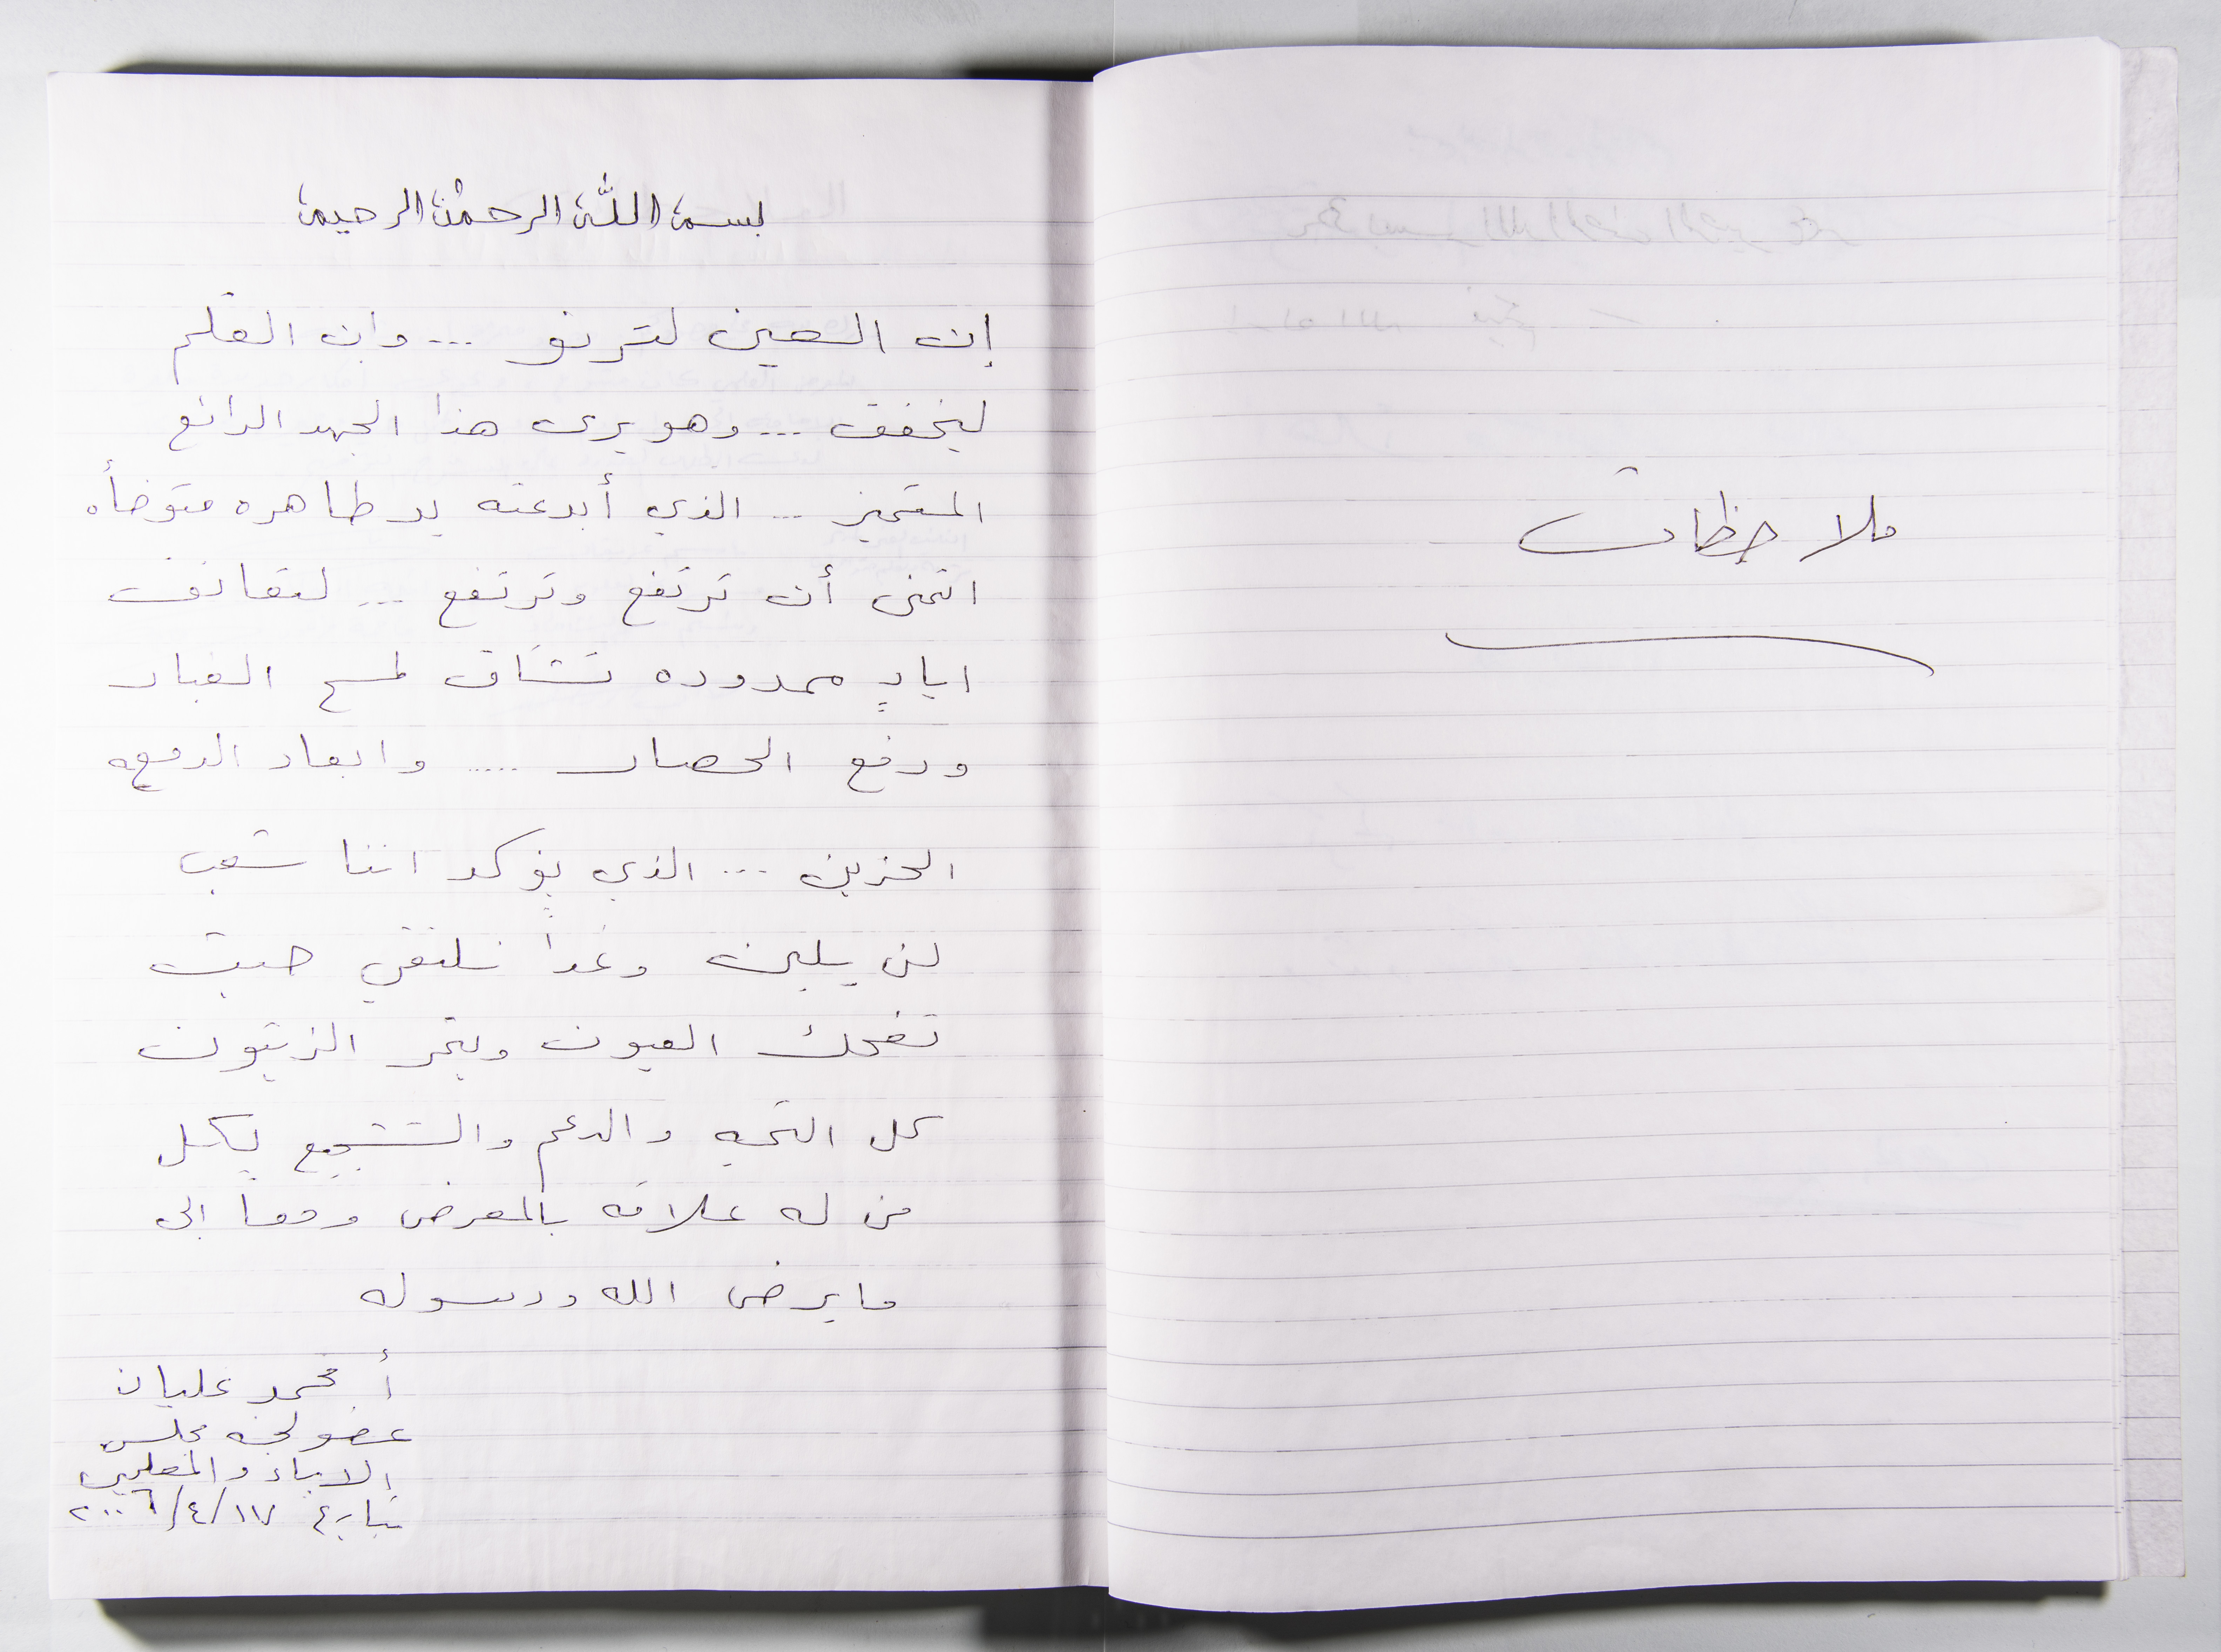 ملاحظات
بسم اللّه الرحمن الرحيم
إن العين لترنو ... وان القلم
ليخفق ... وهو يرى هذا الجهد الرائع
المتميز ... الذي أبدعته يد طاهره متوضأه
اتمنى أن ترتفع وترتفع ... لتعانق
ايادٍ ممدوده تشتاق لمسح الغبار
ورفع الحصار ..... وابعاد الدمعه
الحزين ... الذي يؤكد اننا شعب
لن يلين وغداً نلتقي حيث
تضحك العيون ويثمر الزيتون
كل التحيه والدعم والتشجيع لكل
من له علاقه بالمعرض ومعا الى
ما يرضى الله ورسوله
أ محمد عليان
عضو لجنه مجلس
الاباء والمعلمين
بتاريخ ١٧/٤/٢٠٠٦